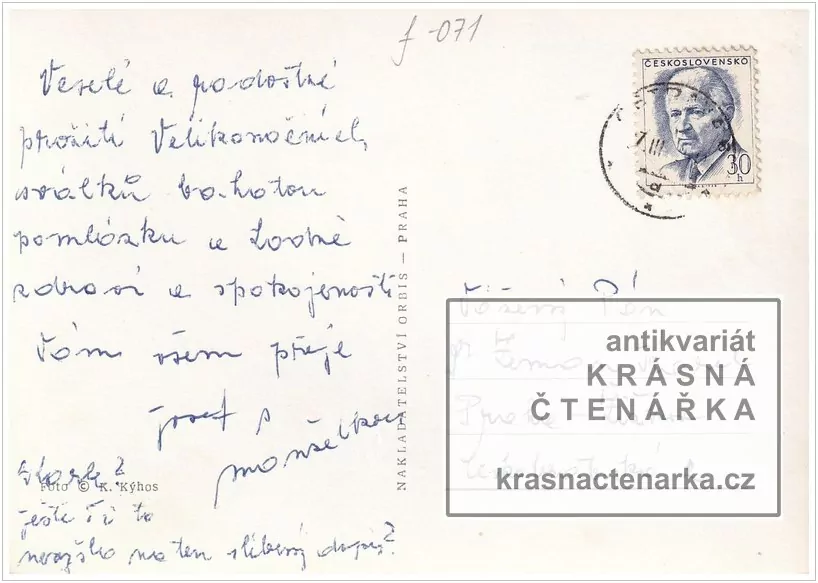 f-071
Veselé a radostné
prožití Velikonočních
svátků bohatou
pomlázku a hodně
zdraví a spokojenosti
Vám všem přeje
Josef s
manželkou
ještě Ti to
na ten slíbený dopis?
Foto © K. Kýhos
NAKLADATELSTVÍ ORBIS — PRAHA
ČESKOSLOVENSKO
30 h
Vážený Pán
Praha
antikvariát
KRÁSNÁ
ČTENÁŘKA
krasnactenarka.cz